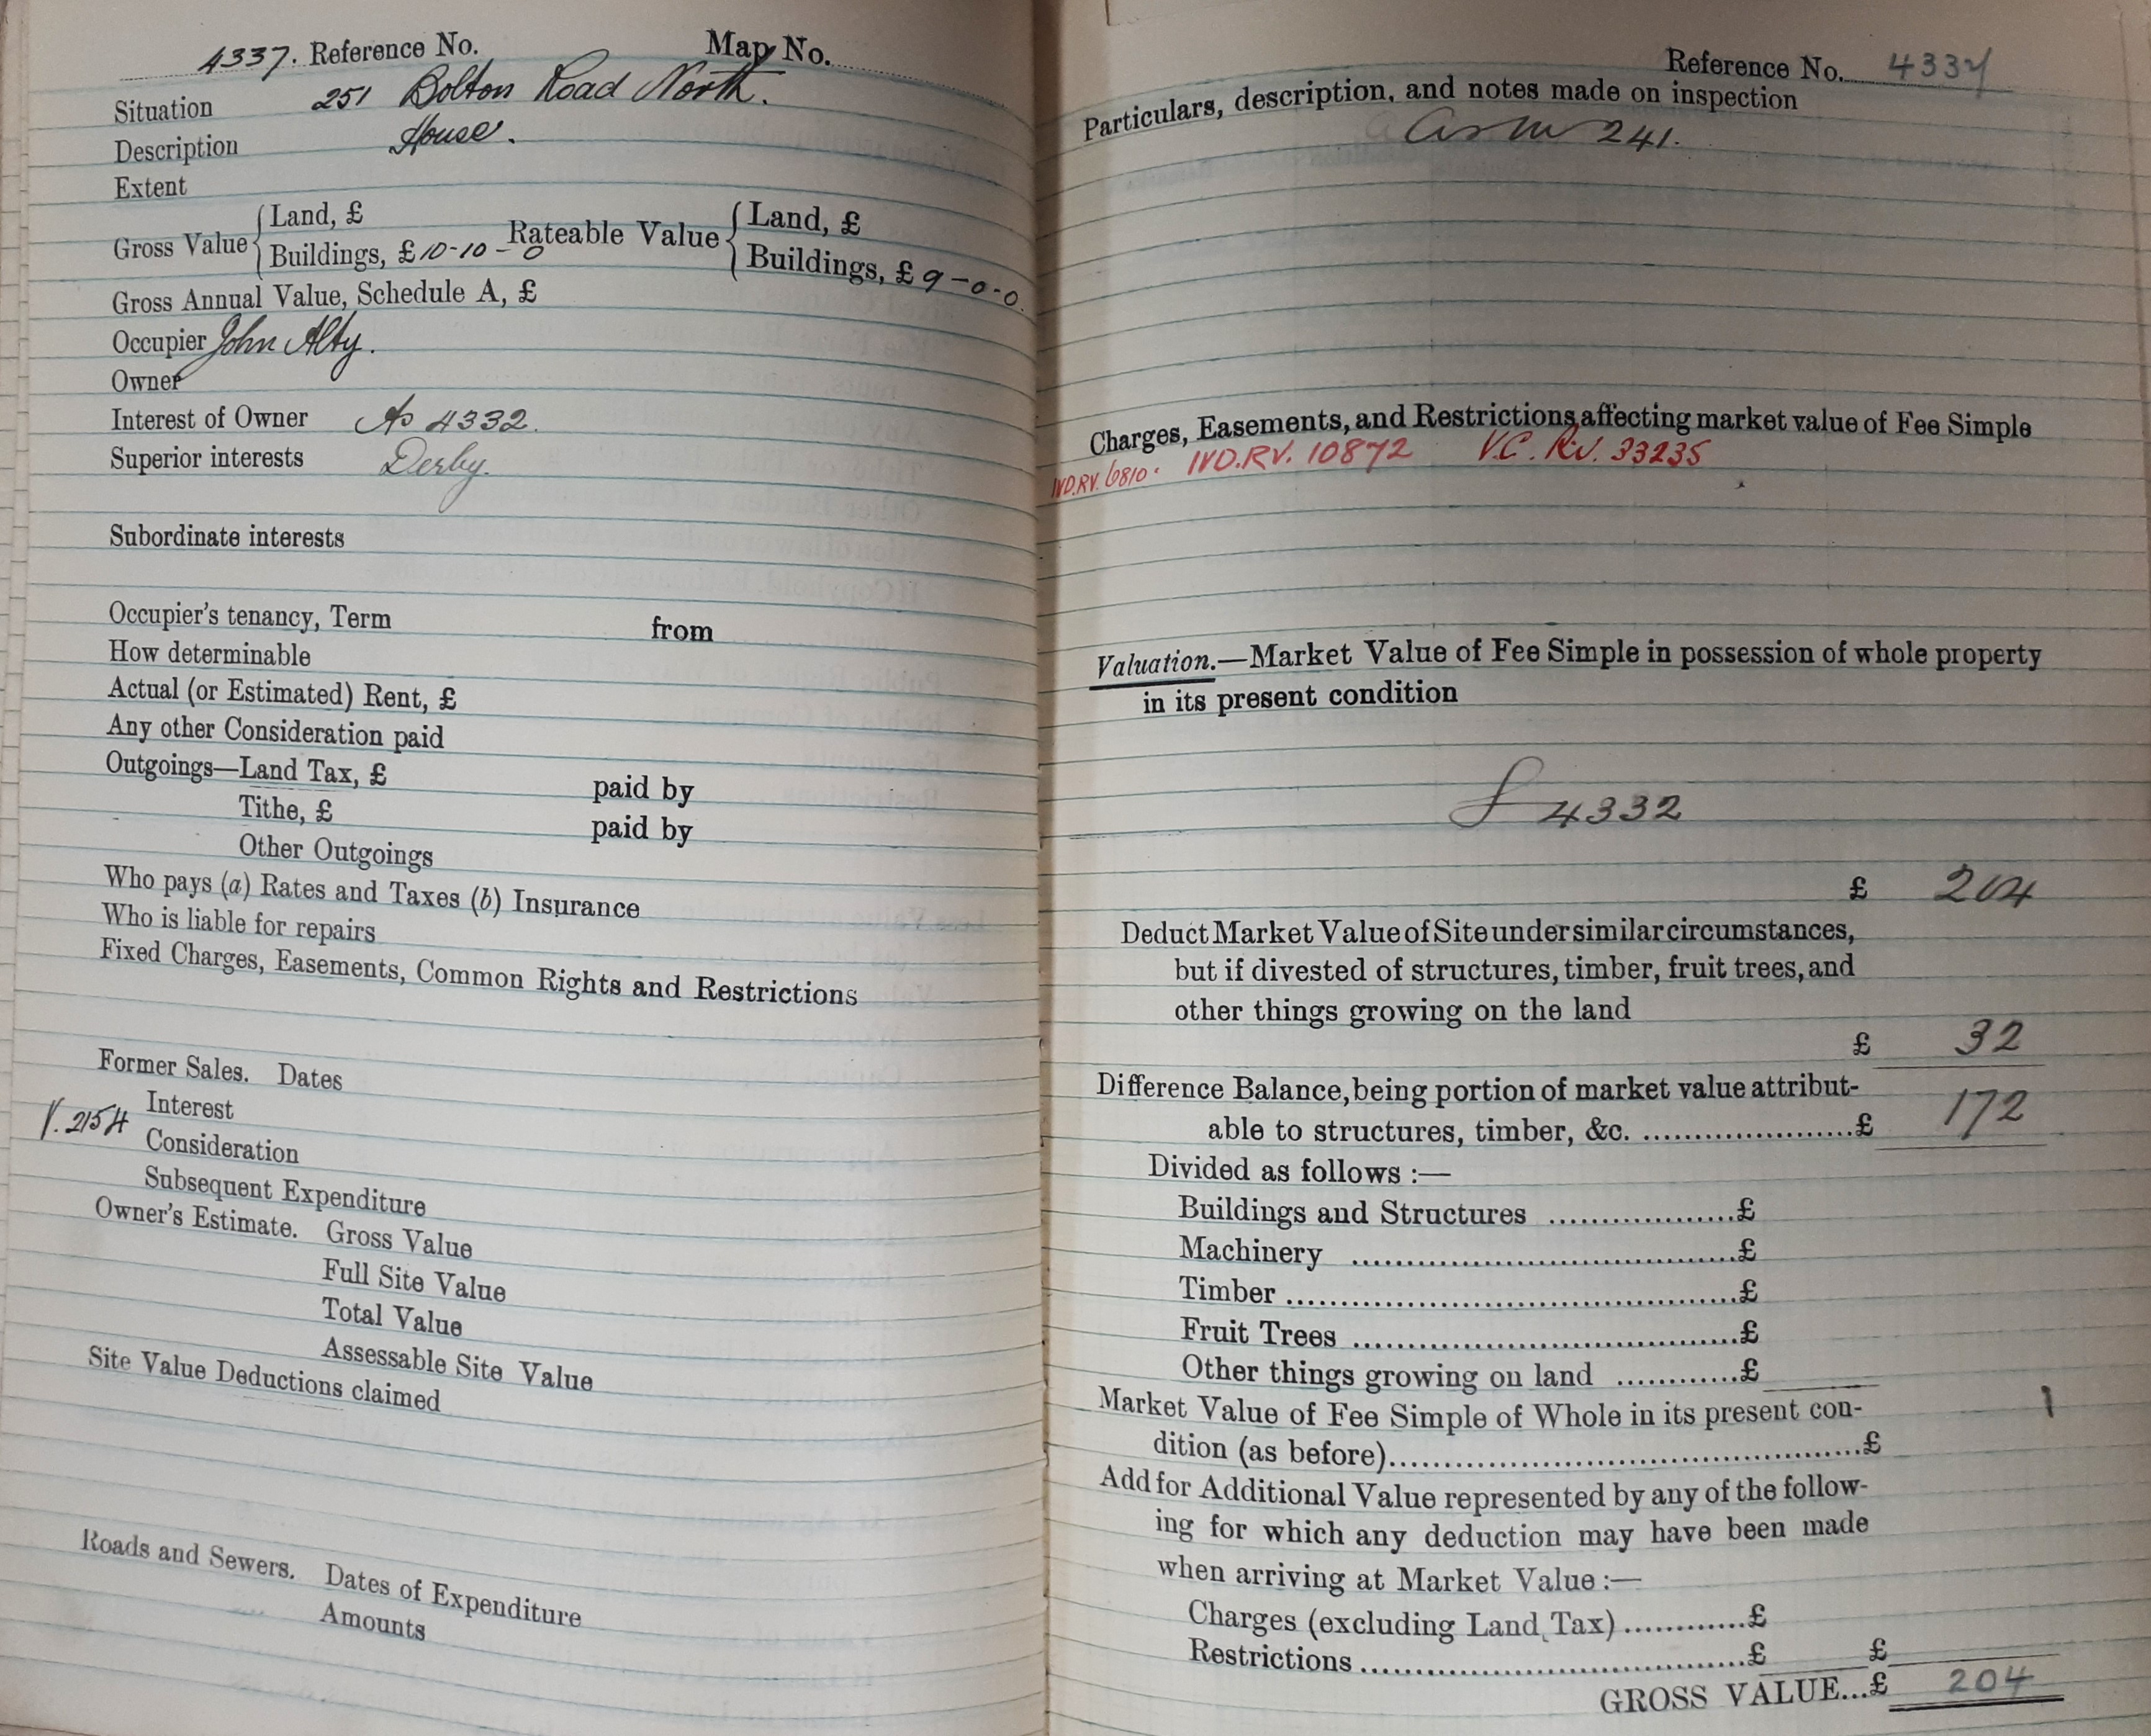 4337. Reference No. Map No.
Situation 251 Bolton Road North.
Description House.
Extent
Gross Value { Land, £ Rateable Value { Land, £
Buildings, £ 10-10-0 Buildings, £ 9-0-0.
Gross Annual Value, Schedule A, £
Occupier John Alty.
Owner
Interest of Owner As 4332.
Superior interests Derby.
Subordinate interests
Occupier's tenancy, Term from
How determinable
Actual (or Estimated) Rent, £
Any other Consideration paid
Outgoings—Land Tax, £ paid by
Tithe, £ paid by
Other Outgoings
Who pays (a) Rates and Taxes (b) Insurance
Who is liable for repairs
Fixed Charges, Easements, Common Rights and Restrictions
Former Sales. Dates
Interest
Consideration
Subsequent Expenditure
Owner's Estimate. Gross Value
Full Site Value
Total Value
Assessable Site Value
Site Value Deductions claimed
Roads and Sewers. Dates of Expenditure
Amounts
Reference No. 4337
Particulars, description, and notes made on inspection
241.
Charges, Easements, and Restrictions affecting market value of Fee Simple
IVD.RV. 6810. IVD.RV. 10872 V.C. RV. 33235
Valuation.—Market Value of Fee Simple in possession of whole property
in its present condition
4332
£ 204
Deduct Market Value of Site under similar circumstances,
but if divested of structures, timber, fruit trees, and
other things growing on the land
£ 32
Difference Balance, being portion of market value attribut-
able to structures, timber, &c. ....................£ 172
Divided as follows :—
Buildings and Structures ..................£
Machinery .....................................£
Timber ...........................................£
Fruit Trees .....................................£
Other things growing on land ............£
Market Value of Fee Simple of Whole in its present con-
dition (as before)............................................£
Add for Additional Value represented by any of the follow-
ing for which any deduction may have been made
when arriving at Market Value :—
Charges (excluding Land Tax) ............£
Restrictions ....................................£ £
GROSS VALUE...£ 204